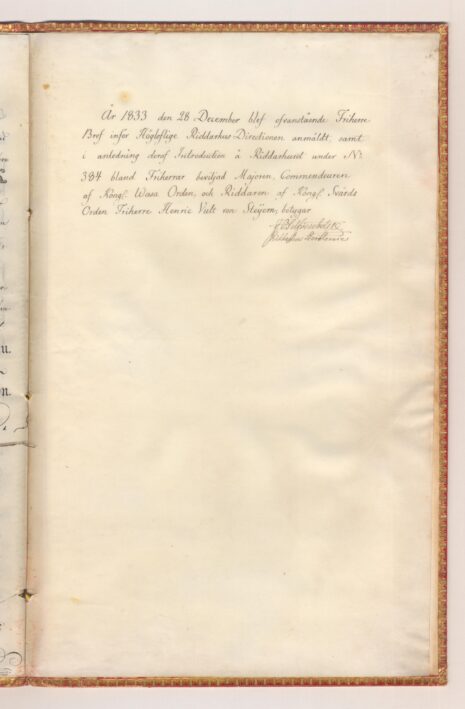 År 1833 den 28 December blef ofvanstående Friherre
Bref inför Högloflige Riddarhus-Directionen anmäldt, samt
i anledning deraf Introduction å Riddarhuset under N:
384 bland Friherrar beviljad Majoren, Commendeuren
af Kongl. Wasa Orden, och Riddaren af Kongl. Svärds
Orden Friherre Henric Vult von Steÿern; betygar